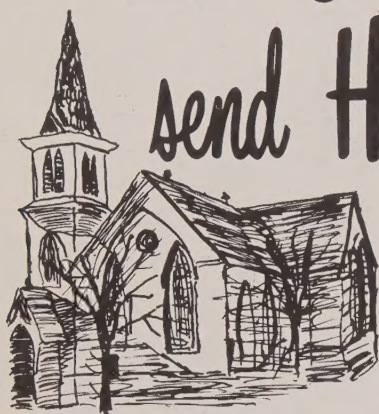 send H